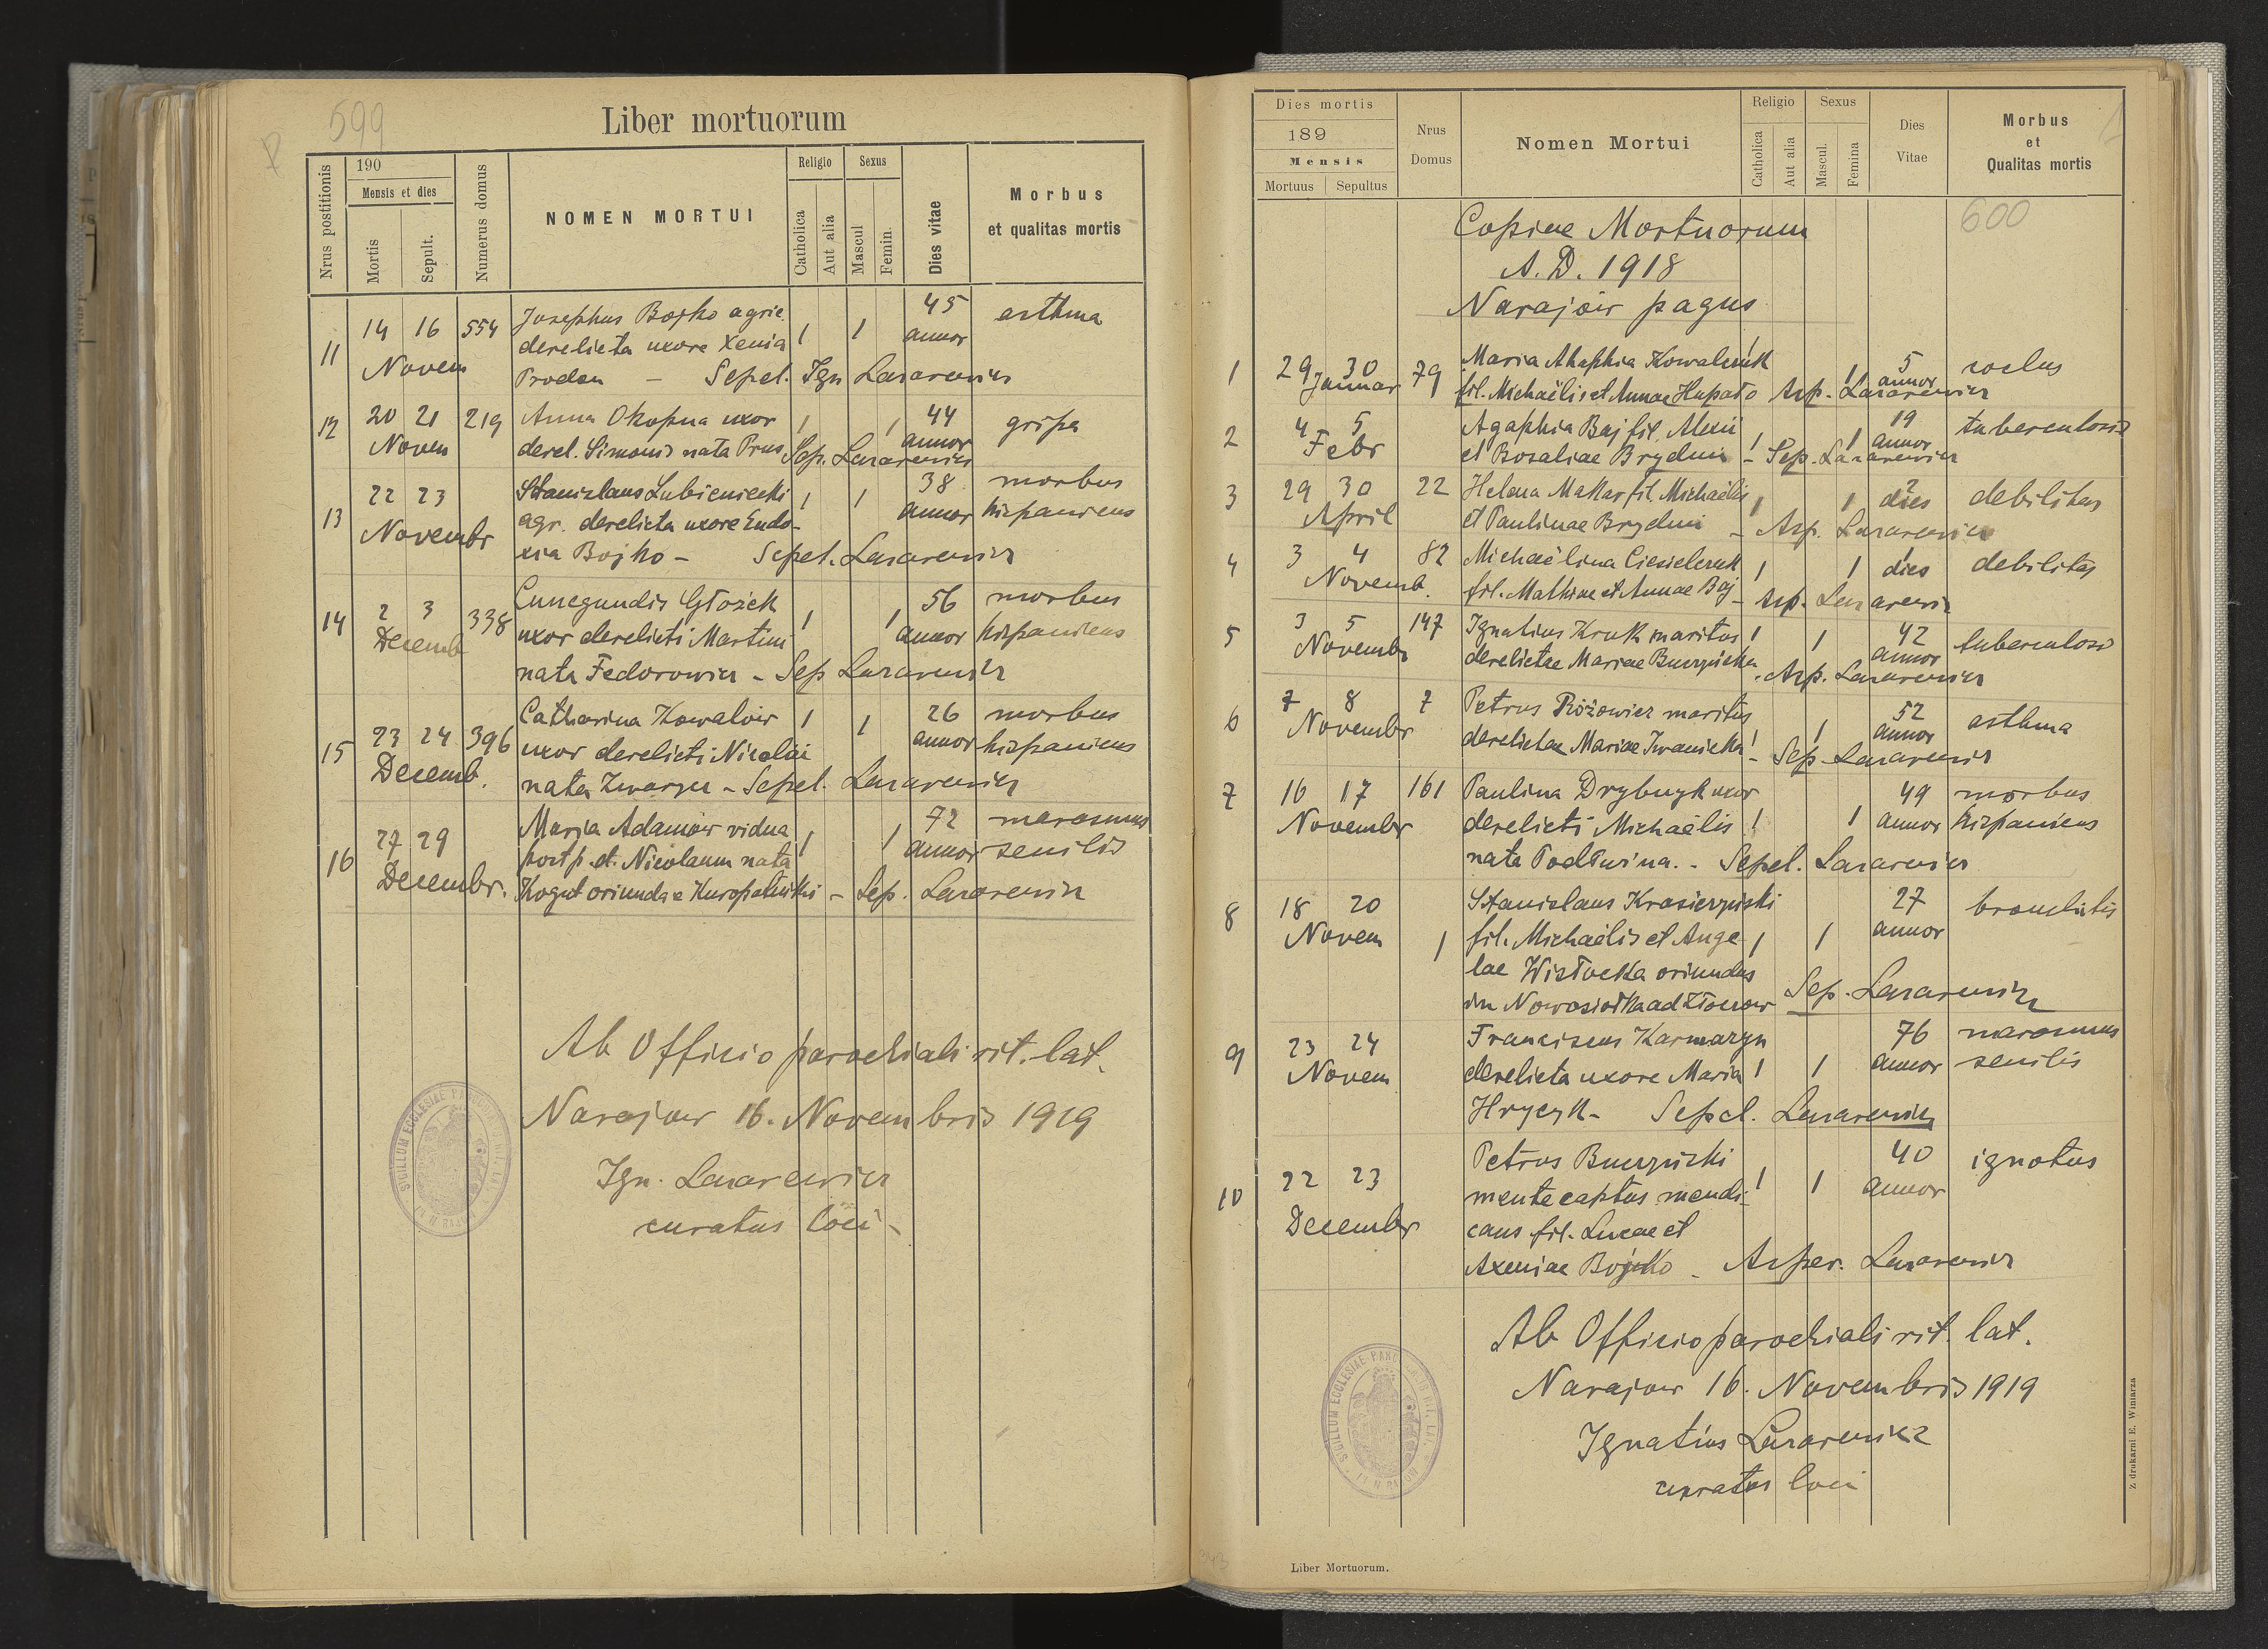 599
Liber mortuorum
Nrus postitionis
190
Mensis et dies
Mortis
Sepult.
Numerus domus
NOMEN MORTUI
Religio
Catholica
Aut alia
Sexus
Mascul
Femin.
Dies vitae
Morbus
et qualitas mortis
11 14 16 554 Josephus Bojko agric 1 1 45 asthma
Novem derelicta uxore Xenia annor
Prodan - Sepel. Ign Lazarewicz
12 20 21 219 Anna Okopna uxor 1 1 44 gripa
Novem derel. Simonis nata Prus Sep. Lazarewicz annor
13 22 23 Stanislaus Lubieniecki 1 1 38 morbus
Novembr agr. derelicta uxore Eudo- annor hispanicus
xia Bojko - Sepel. Lazarewicz
14 2 3 338 Cunegundis Głożek 1 1 56 morbus
Decemb uxor derelicti Martini annor hispanicus
nata Fedorowicz - Sep Lazarewicz
15 23 24 396 Catharina Kowalow 1 1 26 morbus
Decemb. uxor derelicti Nicolai annor hispanicus
nata - Sepel. Lazarewicz
16 27 29 Marja Adamow vidua 1 1 72 marasmus
Decembr. post p. d. Nicolaum nata annor senilis
Kogut oriunda e - Sep. Lazarewicz
Ab Officio parochiali rit. lat.
Narajow 16. Novembris 1919
Ign. Lazarewicz
curatus loci -
SIGILLUM ECCLESIAE
600
Dies mortis
189
Mensis
Mortuus
Sepultus
Nrus
Domus
Nomen Mortui
Religio
Catholica
Aut alia
Sexus
Mascul.
Femina
Dies
Vitae
Morbus
et
Qualitas mortis
Copiae Mortuorum
A. D. 1918
Narajow pagus
1 29 30 79 Maria Ahaphia Kowalczuk 1 5
Januar fil. Michaëlis et Annae Hupało Asp. Lazarewicz annor
2 4 5 Agaphia Baj fil. Alexii 1 1 19 tuberculosis
Febr et Rosaliae Brydun - Sep. Lazarewicz annor
3 29 30 22 Helena Makar fil. Michaëlis 1 1 2 dies debilitas
April et Paulinae Brydun - Asp. Lazarewicz
4 3 4 82 Michaëlina Ciesielczuk 1 1 1 dies debilitas
Novemb. fil. Mathiae et Annae Baj - Asp. Lazarewicz
5 3 5 147 Ignatius Kruk maritus 1 1 42 tuberculosis
Novembr derelictae Mariae - Asp. Lazarewicz annor
6 7 8 7 Petrus Różowicz maritus 1 52 asthma
Novembr derelictae Mariae Iwanicka 1 - Sep. Lazarewicz annor
7 16 17 161 Paulina Drybnyk uxor 49 morbus
Novembr derelicti Michaëlis 1 1 annor hispanicus
nata - Sepel. Lazarewicz
8 18 20 Stanislaus 27 bronchitis
Novem 1 fil. Michaëlis et Ange 1 1 annor
lae Wisłocka oriundus
in Nowosiołka ad Złoczow Sep. Lazarewicz
9 23 24 Franciscus Karmazyn 76 marasmus
Novem derelicta uxore Maria 1 1 annor senilis
Hrycyk - Sepel. Lazarewicz
10 22 23 Petrus 40 ignotus
Decembr mente captus mendi- 1 1 annor
cans fil. Lucae et
Axeniae Bojko - Asper. Lazarewicz
Ab Officio parochiali rit. lat.
Narajow 16. Novembris 1919
Ignatius Lazarewicz
curatus loci
SIGILLUM ECCLESIAE
Liber Mortuorum.
Z drukarni E. Winiarza